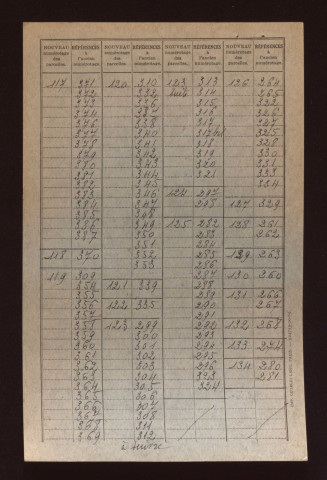 NOUVEAU numérotage des parcelles. RÉFÉRENCES à l'ancien numérotage. NOUVEAU numérotage des parcelles. RÉFÉRENCES à l'ancien numérotage. NOUVEAU numérotage des parcelles. RÉFÉRENCES à l'ancien numérotage. NOUVEAU numérotage des parcelles. RÉFÉRENCES à l'ancien numérotage.
117 371 120 310 123 313 126 264
372 332 314 265
373 336 315 322
374 337 316 326
376 338 317 327
377 340 317bis 325
378 341 318 328
379 342 319 330
380 343 320 331
381 344 321 333
382 345 334
383 346 124 297
384 347 298 127 329
385 348
386 349 125 282 128 261
387 350 283 262
351 284
118 370 352 285 129 263
353 286
119 309 287 130 260
354 121 339 288
355 289 131 266
356 122 335 290 267
357 291
358 123 299 292 132 268
359 300 293
360 301 294 133 274
361 302 295
362 303 296 134 280
363 304 323 281
364 305 324
365 306
366 307
367 308
368 311
369 312
à suivre